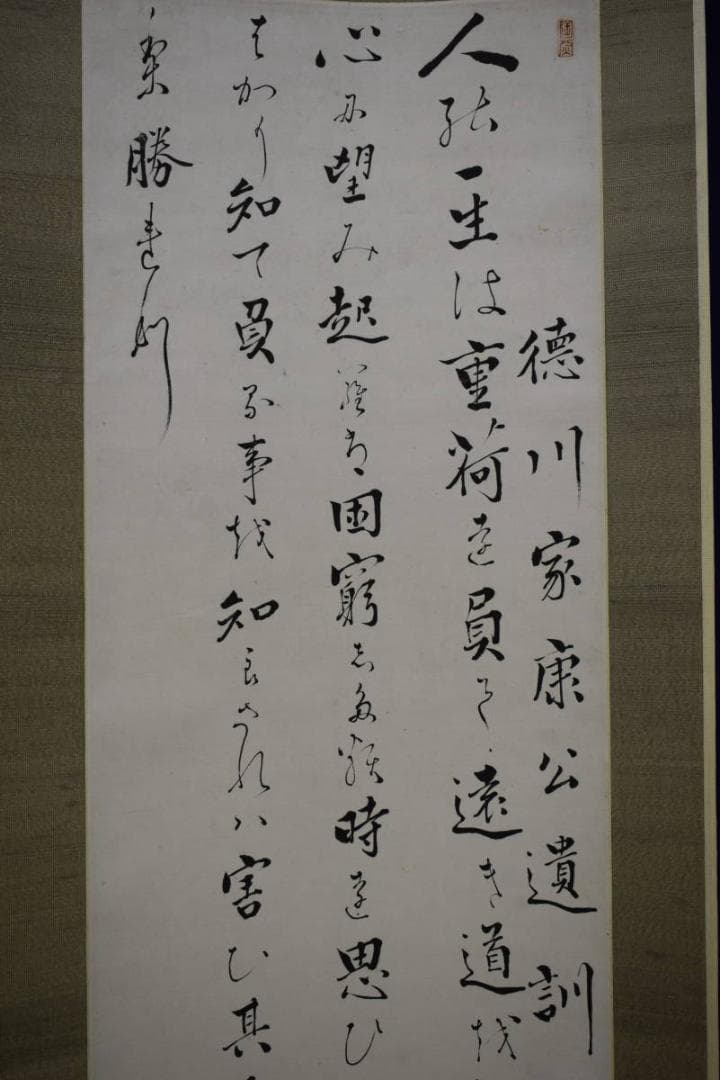 徳川家康公遺訓
人の一生は重荷を負て遠き道を
心に望み起らは困窮したる時を思ひ
はかり知て負る事を知らされハ害む其
り勝れり